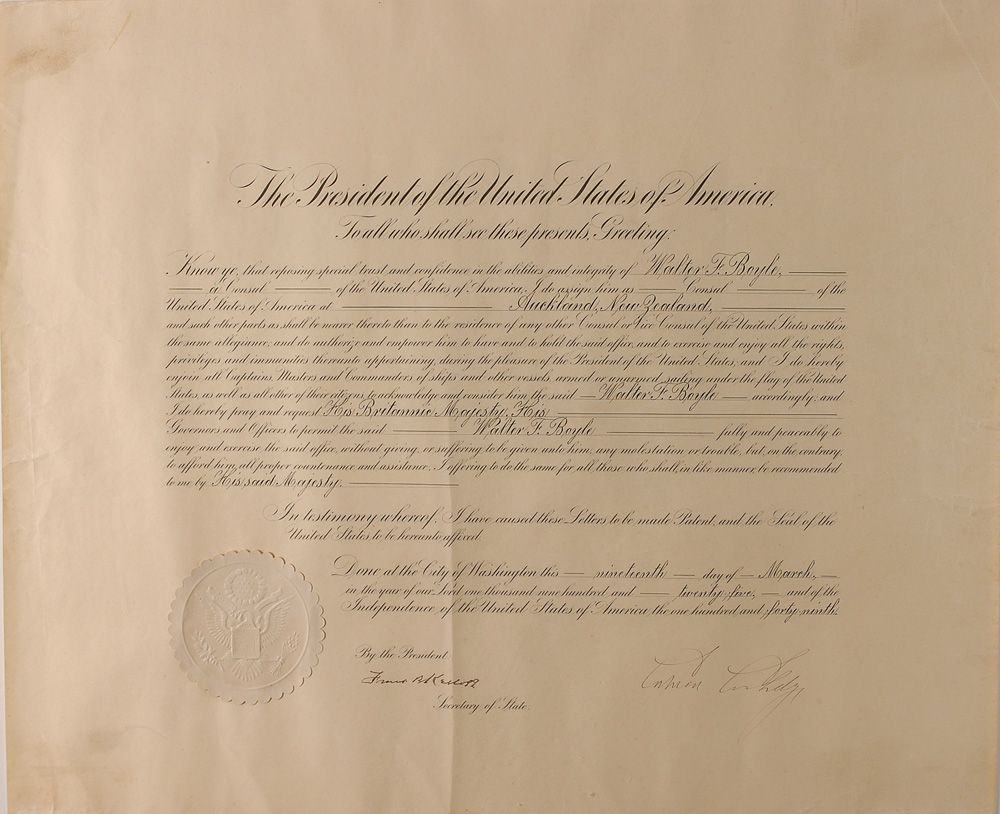 The President of the United States of America,
To all who shall see these presents, Greeting:
Know ye, that reposing special trust and confidence in the abilities and integrity of Walter F. Boyle,
a Consul of the United States of America, I do assign him as Consul of the
United States of America at Auckland, New Zealand,
and such other parts as shall be nearer thereto than to the residence of any other Consul or Vice Consul of the United States within
the same allegiance; and do authorize and empower him to have and to hold the said office, and to exercise and enjoy all the rights,
privileges and immunities thereunto appertaining, during the pleasure of the President of the United States; and I do hereby
enjoin all Captains, Masters and Commanders of ships and other vessels, armed or unarmed, sailing under the flag of the United
States, as well as all other of their citizens, to acknowledge and consider him the said Walter F. Boyle accordingly; and
I do hereby pray and request His Britannic Majesty, His
Governors and Officers to permit the said Walter F. Boyle fully and peaceably to
enjoy and exercise the said office, without giving, or suffering to be given unto him, any molestation or trouble, but, on the contrary,
to afford him all proper countenance and assistance, I offering to do the same for all those who shall in like manner be recommended
to me by His said Majesty.
In testimony whereof, I have caused these Letters to be made Patent, and the Seal of the
United States to be hereunto affixed.
Done at the City of Washington this nineteenth day of March,
in the year of our Lord one thousand nine hundred and twenty-five, and of the
Independence of the United States of America the one hundred and forty-ninth.
By the President
Frank B Kellogg
Calvin Coolidge
Secretary of State.